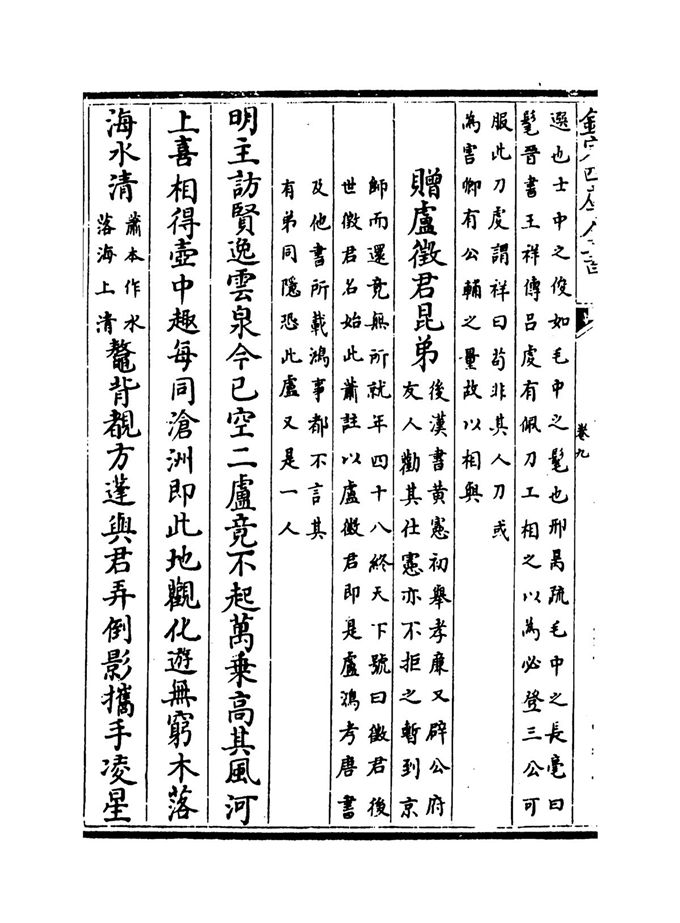 卷九
選也士中之俊如毛中之髦也邢昺疏毛中之長毫曰
髦晉書王祥傳呂虔有佩刀工相之以為必登三公可
服此刀虔謂祥曰茍非其人刀或
為害卿有公輔之量故以相與
贈盧徵君昆弟
後漢書黃憲初舉孝廉又辟公府
友人勸其仕憲亦不拒之暫到京
師而還竟無所就年四十八終天下號曰徵君後
世徵君名始此蕭註以盧徵君即是盧鴻考唐書
及他書所載鴻事都不言其
有弟同隱恐此盧又是一人
明主訪賢逸雲泉今已空二盧竟不起萬乗高其風河
上喜相得壺中趣每同滄洲即此地觀化遊無窮木落
海水清
蕭本作水
落海上清
鼇背覩方蓬與君弄倒影攜手凌星